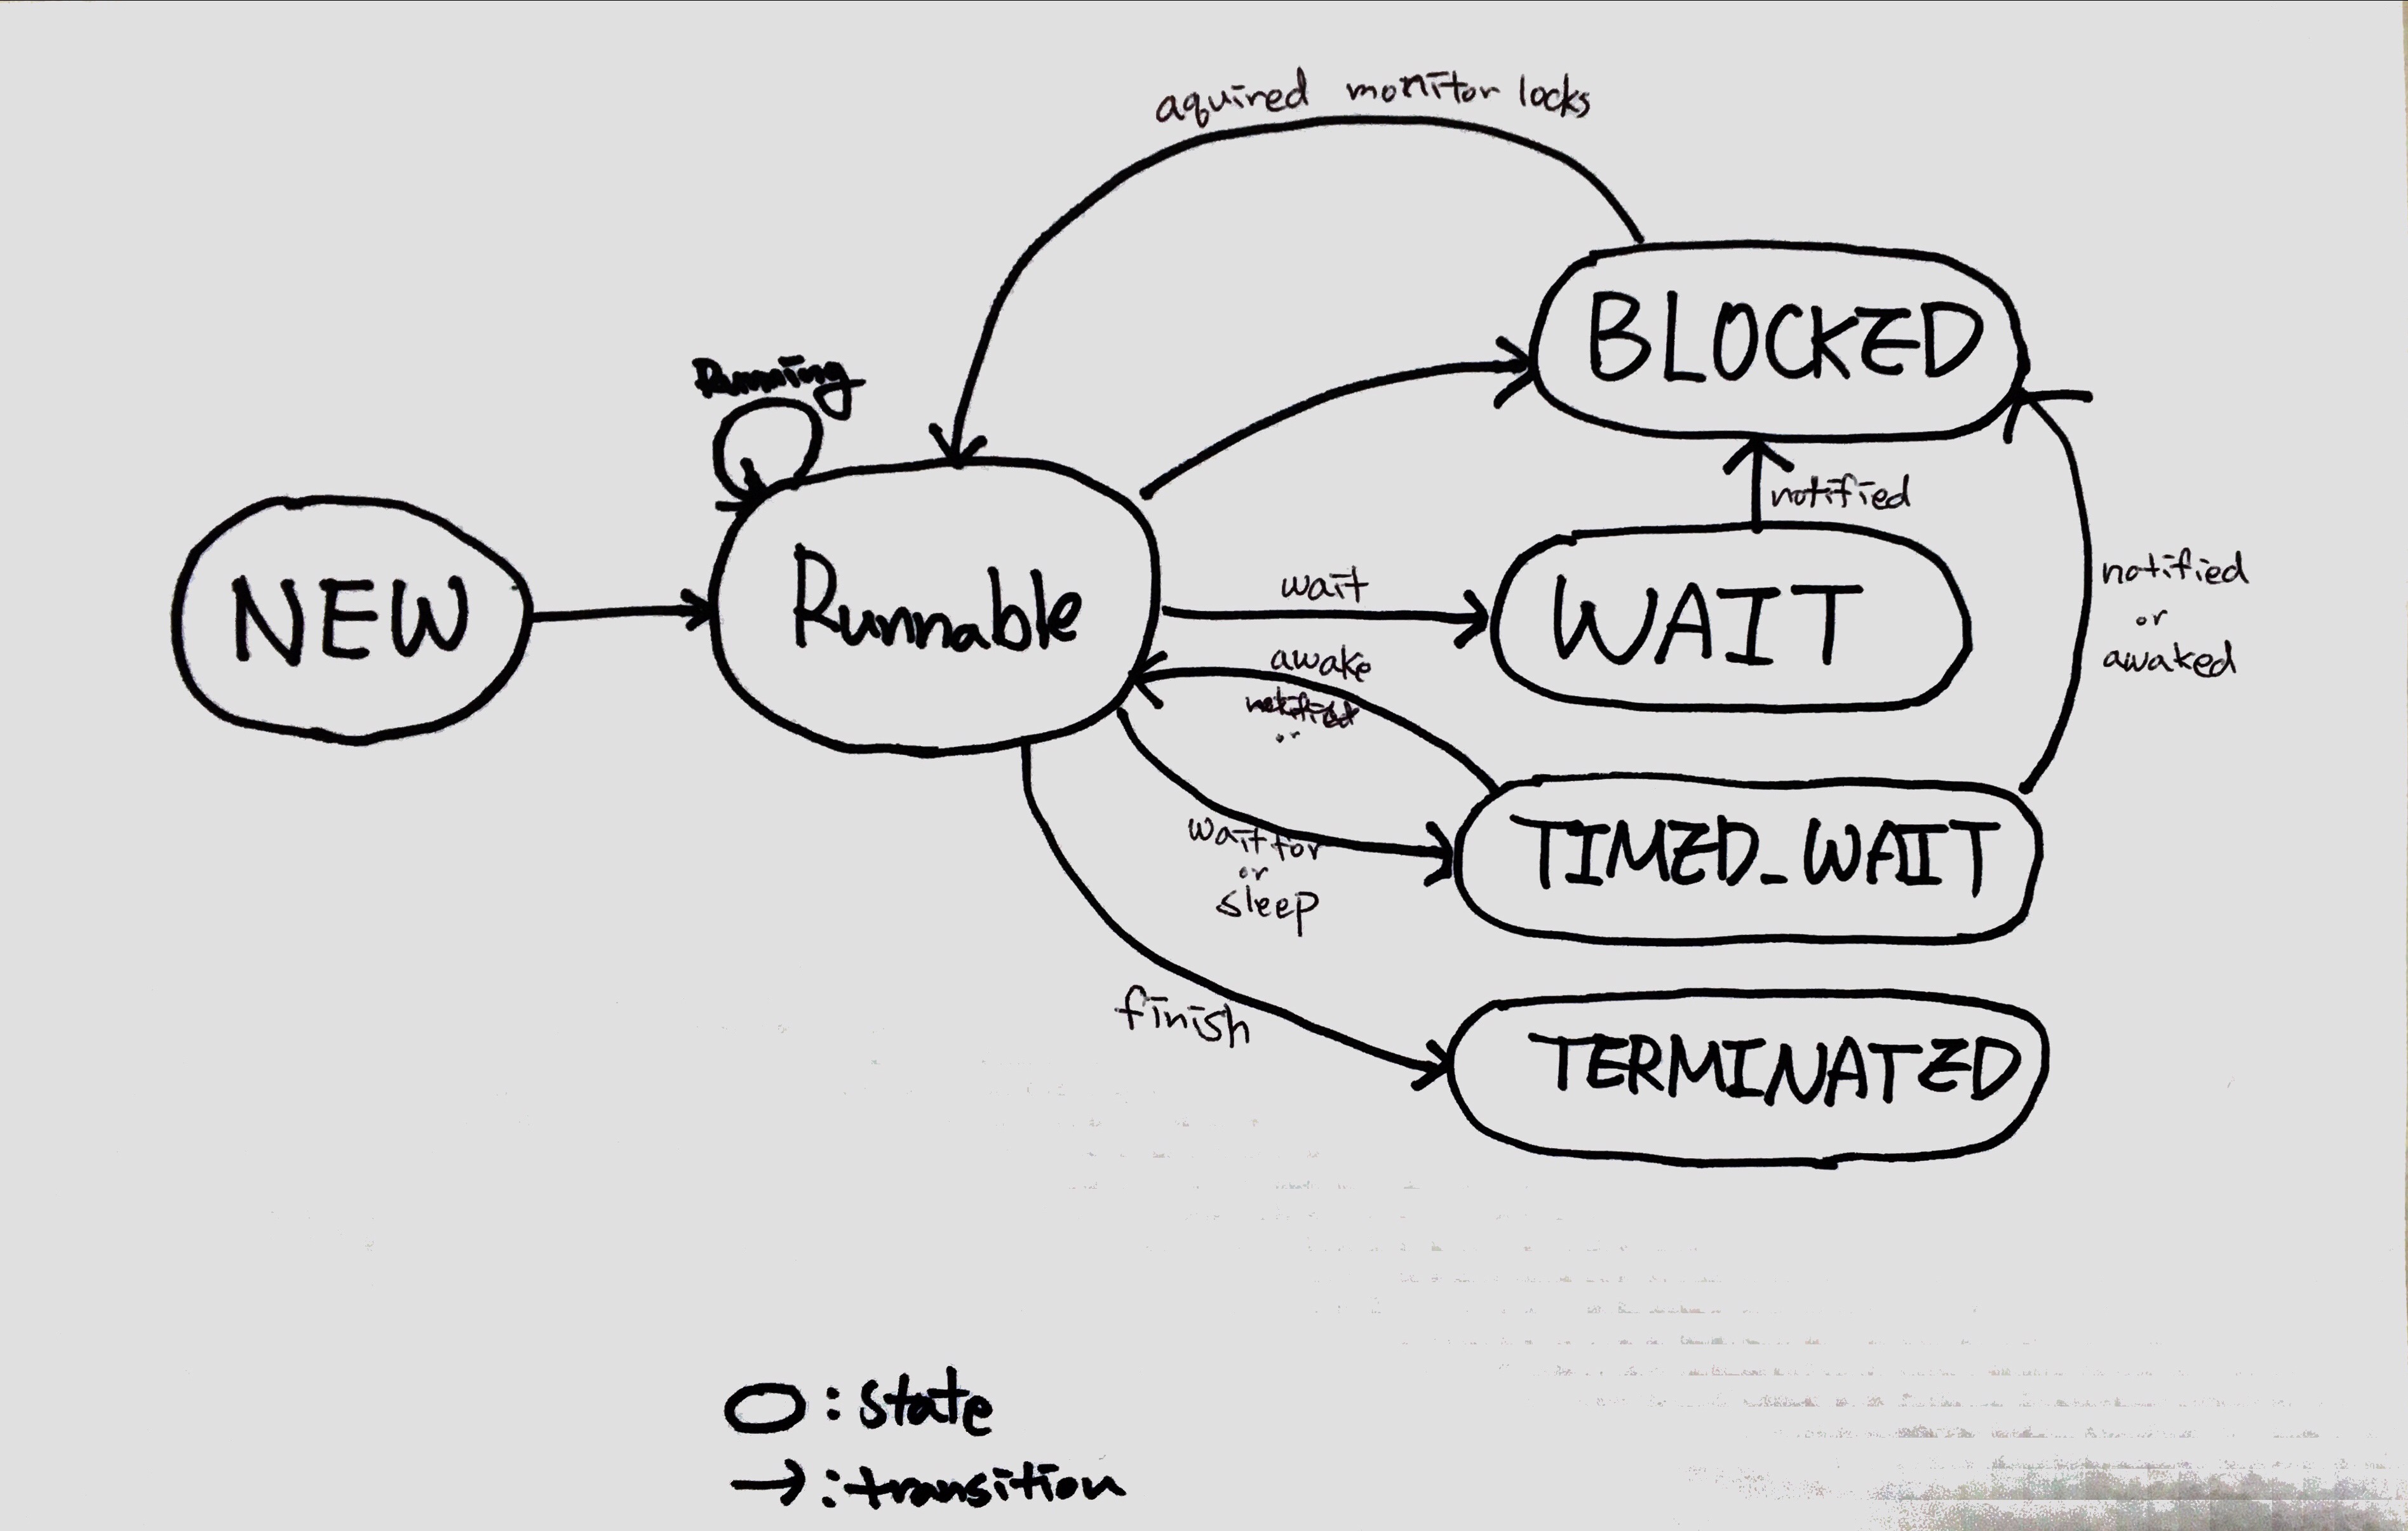 aquired monitor locks
BLOCKED
Running
notified
NEW
Runnable
wait
WAIT
notified
or
awaked
awake
notified
or
wait for
or
sleep
TIMED_WAIT
finish
TERMINATED
O : state
→ : transition